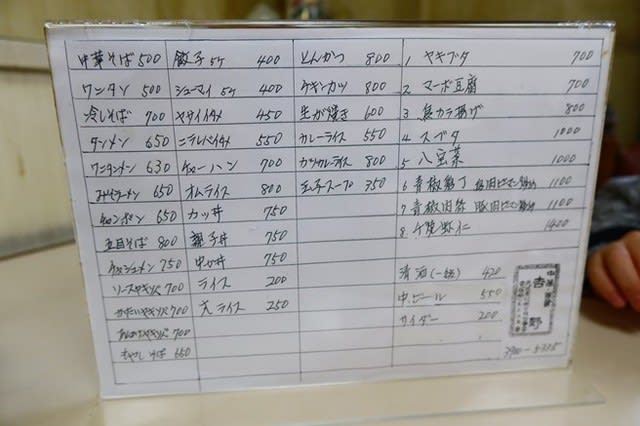 中華そば 500
ワンタン 500
冷しそば 700
タンメン 650
ワンタンメン 630
みそラーメン 650
チャンポン 650
五目そば 800
チャーシューメン 750
ソースヤキソバ 700
かたいヤキソバ 700
あんかけヤキソバ 700
もやしそば 650
餃子 5ケ 400
シューマイ 5ケ 400
ヤサイイタメ 450
ニラレバイタメ 550
チャーハン 700
オムライス 800
カツ丼 750
親子丼 750
中か丼 750
ライス 200
大ライス 250
とんかつ 800
チキンカツ 800
生が焼き 600
カレーライス 550
カツカレーライス 800
玉子スープ 350
1 ヤキブタ 700
2 マーボ豆腐 700
3 鳥カラ揚げ 800
4 スブタ 1000
5 八宝菜 1000
6 青椒鶏丁 1100
7 青椒肉絲 豚肉ピーマン 1100
8 干焼蝦仁 1400
清酒(一級) 420
中ビール 550
サイダー 200
吉野